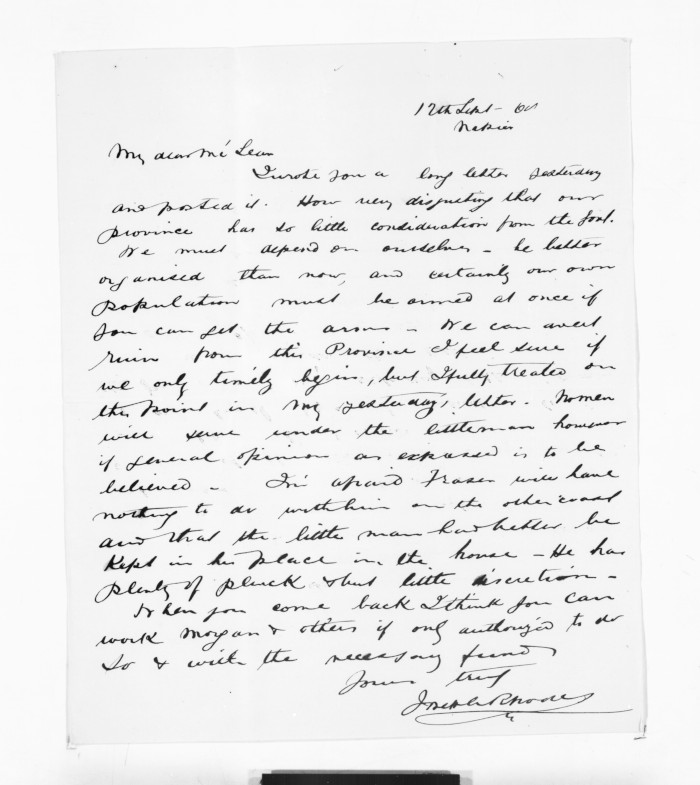 17th Sept - 68
Napier
My dear McLean
I wrote you a long letter yesterday
and posted it. How very disgusting that our
province has so little consideration from the Govt.
We must depend on ourselves - be better
organised than now, and certainly our own
population must be armed at once if
you can get the arms - We can avert
ruin from this Province I feel sure if
we only timely begin, but I fully treated on
this point in my yesterday's letter. No men
will serve under the little man however
if general opinion as expressed is to be
believed - I'm afraid Fraser will have
nothing to do with him on the other coast
and that the little man had better be
kept in his place in the house - He has
plenty of pluck & but little discretion -
When you come back I think you can
work Morgan & others if only authorized to do
so & with the necessary funds
Yours truly
Joseph Rhodes